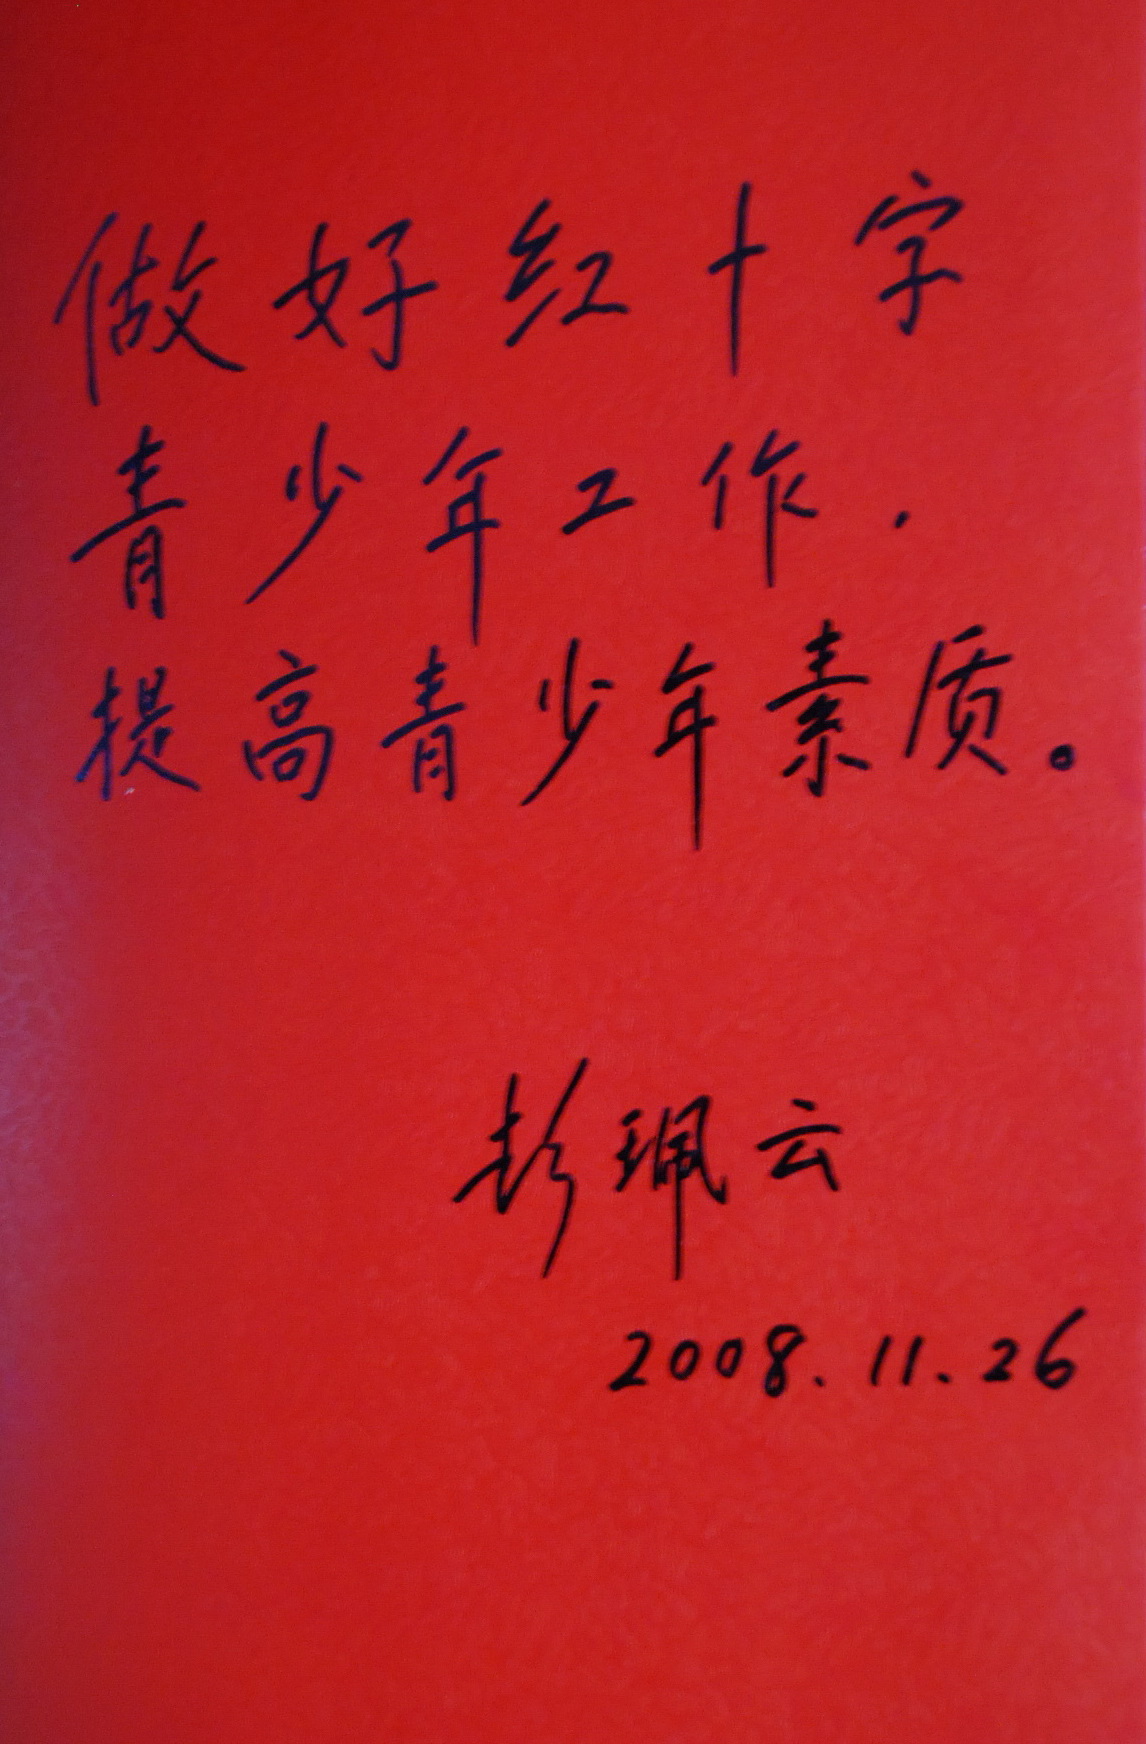 做好红十字
青少年工作，
提高青少年素质。
彭珮云
2008.11.26